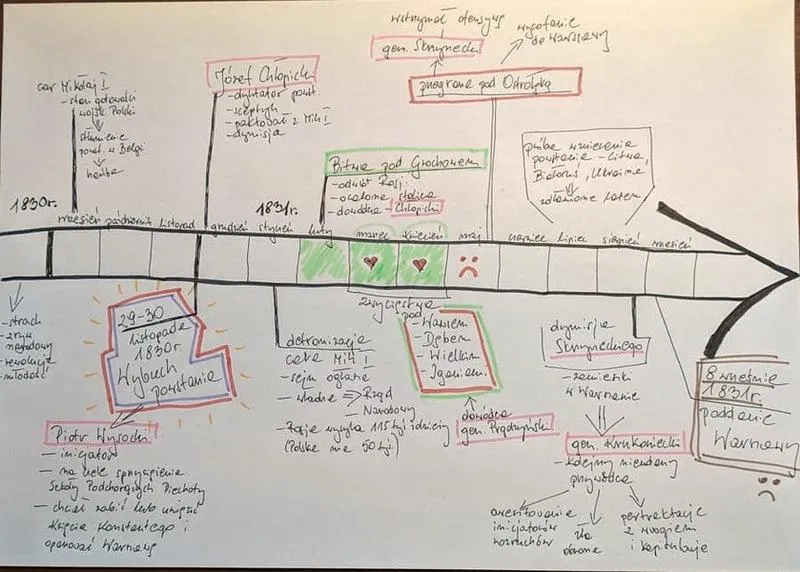 wstrzymał ofensywę
gen. Skrzynecki
wycofanie
do Warszawy
przegrana pod Ostrołęką
car Mikołaj I
- stan gotowości
wojsk Polski
stłumienie
powst. w Belgii
hańba
Józef Chłopicki
- dyktator powst.
- sceptyk
- paktował z Mik I
- dymisja
Bitwa pod Grochowem
- odwrót Rosji
- ocalona stolica
- dowódca - Chłopicki
próba wzniecenia
powstania - Litwa,
Białoruś, Ukraina
zdławione latem
1830r.
wrzesień październik listopad grudzień
1831r.
styczeń luty marzec kwiecień maj czerwiec lipiec sierpień wrzesień
- strach
- zryw
narodowy
- rewolucja
- młodość
29-30
listopada
1830r.
Wybuch
powstania
Piotr Wysocki
- inicjator
- na czele sprzysiężenia
Szkoły Podchorążych Piechoty
- chciał zabić lub uwięzić
Księcia Konstantego i
opanować Warszawę
detronizacja
cara Mik I
- sejm ogłasza
- władza => Rząd
Narodowy
- Rosja wysyła 115 tyś żołnierzy
(Polska ma 50 tyś)
zwycięstwa
pod
- Wawrem
- Dębem
- Wielkim
- Iganiami
dowódca
gen. Prądzyński
dymisja
Skrzyneckiego
- zamieszki
w Warszawie
gen. Krukowiecki
- kolejny nieudany
przywódca
aresztowanie
inicjatorów
rozruchów
zła
obrona
pertraktacje
z wrogiem
i kapitulacje
8 września
1831r.
poddanie
Warszawy